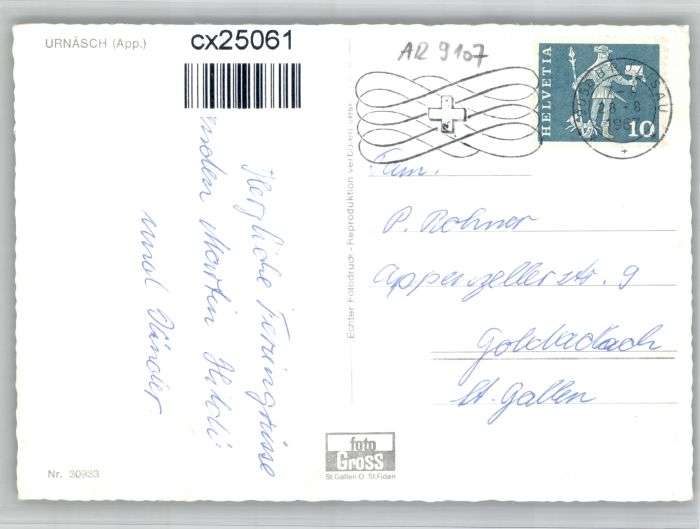 URNÄSCH (App.)
cx25061
AR 9107
HELVETIA
10
Herzliche Feriengrüsse
senden Martin Heidi
und Kinder
Echter Fotodruck - Reproduktion verboten
Fam.
P. Rohner
Appenzellerstr. 9
Goldach
St. Gallen
foto
Gross
St. Gallen O. St. Fiden
Nr. 30983